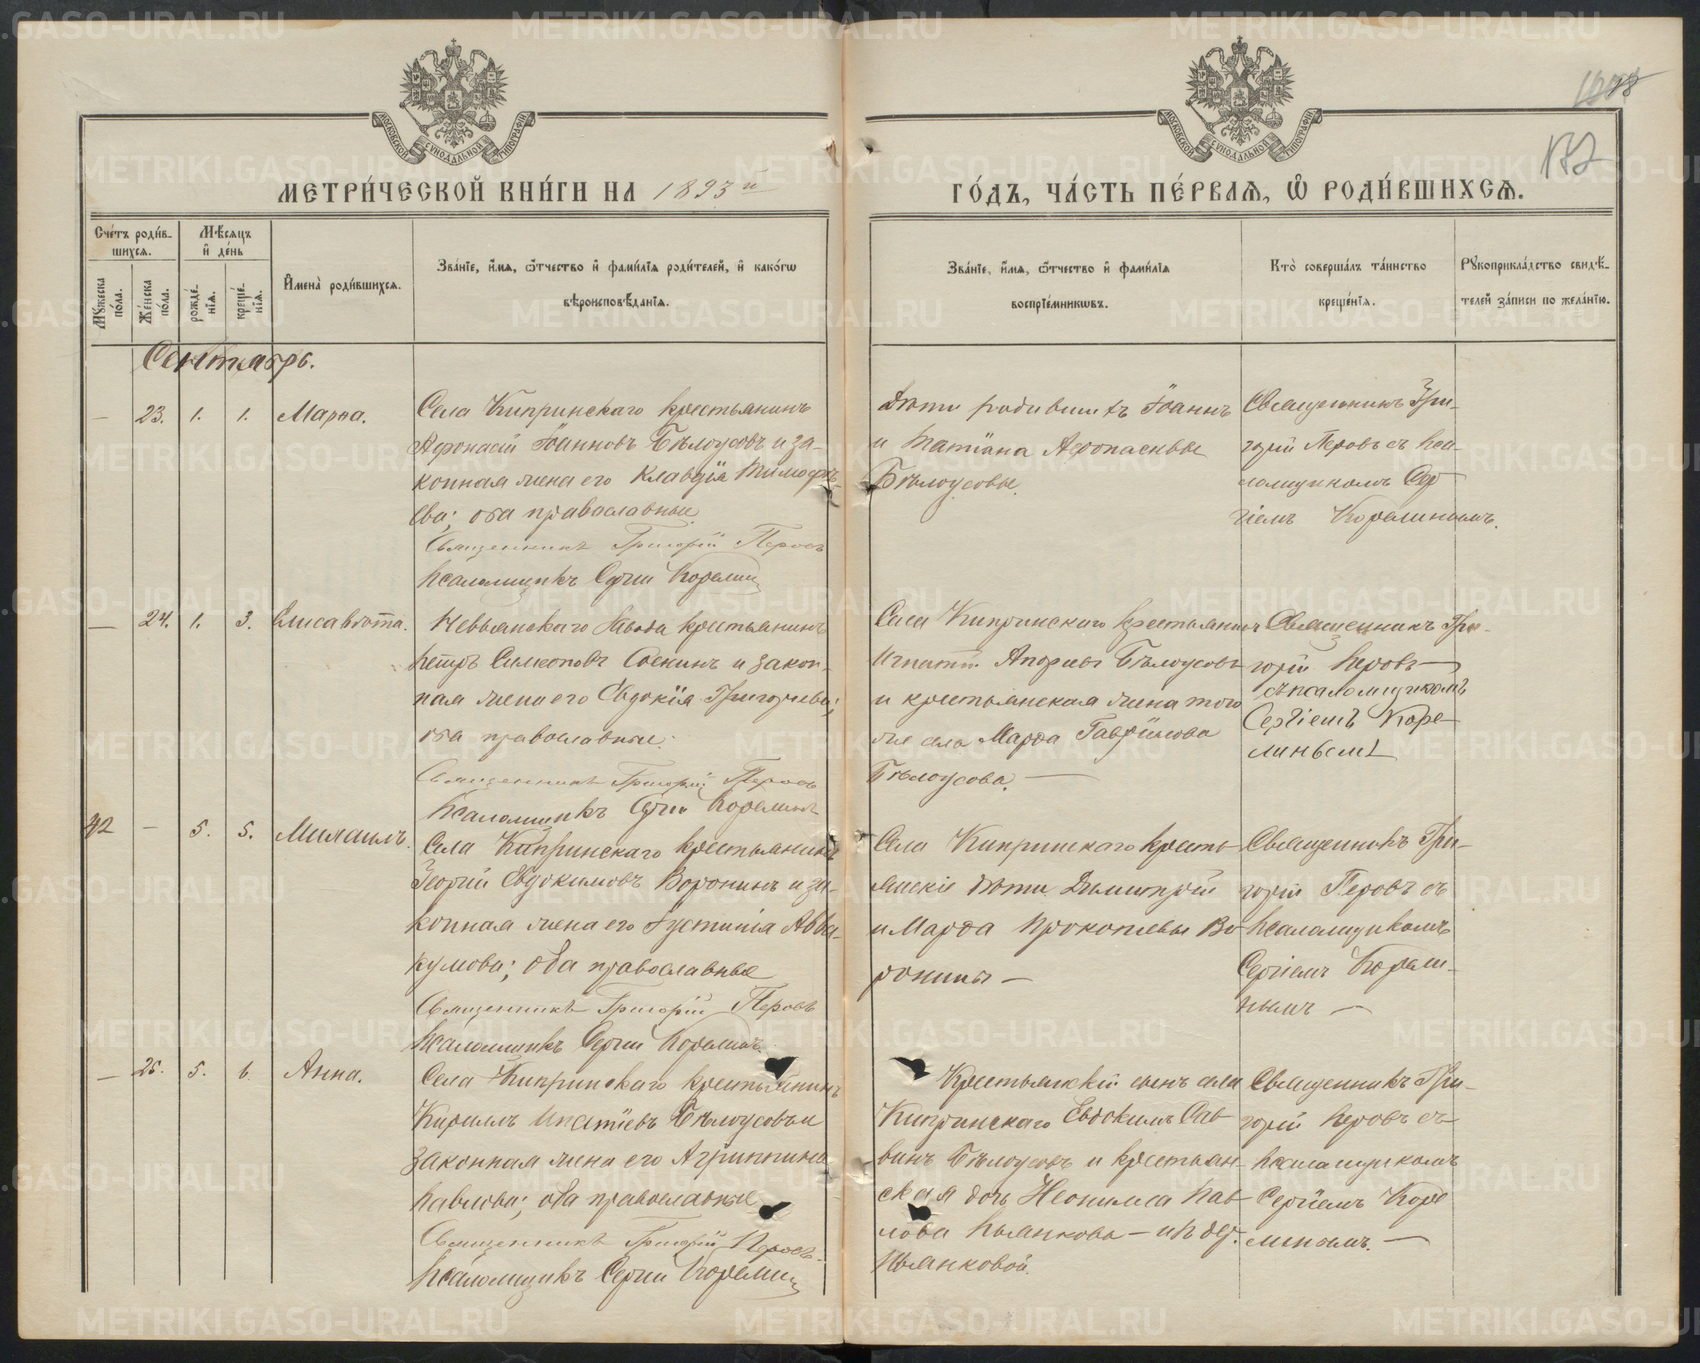 МЕТРИ́ЧЕСКОЙ КНИ́ГИ НА 1893 й
ГО́ДЪ, ЧА́СТЬ ПЕ́РВАЯ, Ѡ РОДИ́ВШИХСЯ.
172
Сче́тъ роди́в-
шихся.
Мꙋ́жеска по́ла.
Же́нска по́ла.
Мѣ́сяцъ
и де́нь
рожде́нїя.
креще́нїя.
Имена̀ роди́вшихся.
Зва́нїе, и́мя, ѻ́тчество и фами́лїя роди́телей, и како́гѡ
вѣроисповѣ́данїя.
Зва́нїе, и́мя, ѻ́тчество и фами́лїя
воспрїе́мникѡвъ.
Кто̀ соверша́лъ та́инство
креще́нїя.
Рꙋкоприкла́дство свидѣ́-
телей за́писи по жела́нїю.
Сентябрь.
— 23. 1. 1. Марѳа.
Села Кипринскаго крестьянинъ
Аѳонасій Іоанновъ Бѣлоусовъ и за-
конная жена его Клавдія Тимоѳѣ-
ева; оба православные.
Священникъ Григорій Перовъ
Псаломщикъ Сергій Корелинъ
Дѣти родившихъ Іоаннъ
и Татіана Аѳонасьевы
Бѣлоусовы.
Священникъ Гри-
горій Перовъ съ пса-
ломщикомъ Сер-
гіемъ Корелинымъ.
— 24. 1. 3. Елисавета.
Невьянскаго Завода крестьянинъ
Петръ Симеоновъ и закон-
ная жена его Евдокія Григорьева;
оба православные.
Священникъ Григорій Перовъ
Псаломщикъ Сергій Корелинъ
Села Кипринскаго крестьянинъ
Игнатій Бѣлоусовъ
и крестьянская жена того
же села Марѳа Гавріилова
Бѣлоусова. —
Священникъ Гри-
горій Перовъ —
съ псаломщикомъ
Сергіемъ Коре-
линымъ
42 — 5. 5. Михаилъ.
Села Кипринскаго крестьянинъ
Георгій Евдокимовъ Воронинъ и за-
конная жена его Іустинія Авва-
кумова; оба православные
Священникъ Григорій Перовъ
Псаломщикъ Сергій Корелинъ
Села Кипринскаго кресть-
янскіе дѣти Димитрій
и Марѳа Прокопьевы Во-
ронины —
Священникъ Гри-
горій Перовъ съ
псаломщикомъ
Сергіемъ Корели-
нымъ —
— 25. 5. 6. Анна.
Села Кипринскаго крестьянинъ
Кириллъ Ипатіевъ Бѣлоусовъ и
законная жена его Агриппина
Павлова; оба православные
Священникъ Григорій Перовъ
Псаломщикъ Сергій Корелинъ
Крестьянскій сынъ села
Кипринскаго Евдокимъ Сав-
винъ Бѣлоусовъ и крестьян-
ская дочь Неонилла Пав-
лова Пьянкова — и
Пьянковой.
Священникъ Гри-
горій Перовъ съ
псаломщикомъ
Сергіемъ Коре
линымъ. —
METRIKI.GASO-URAL.RU